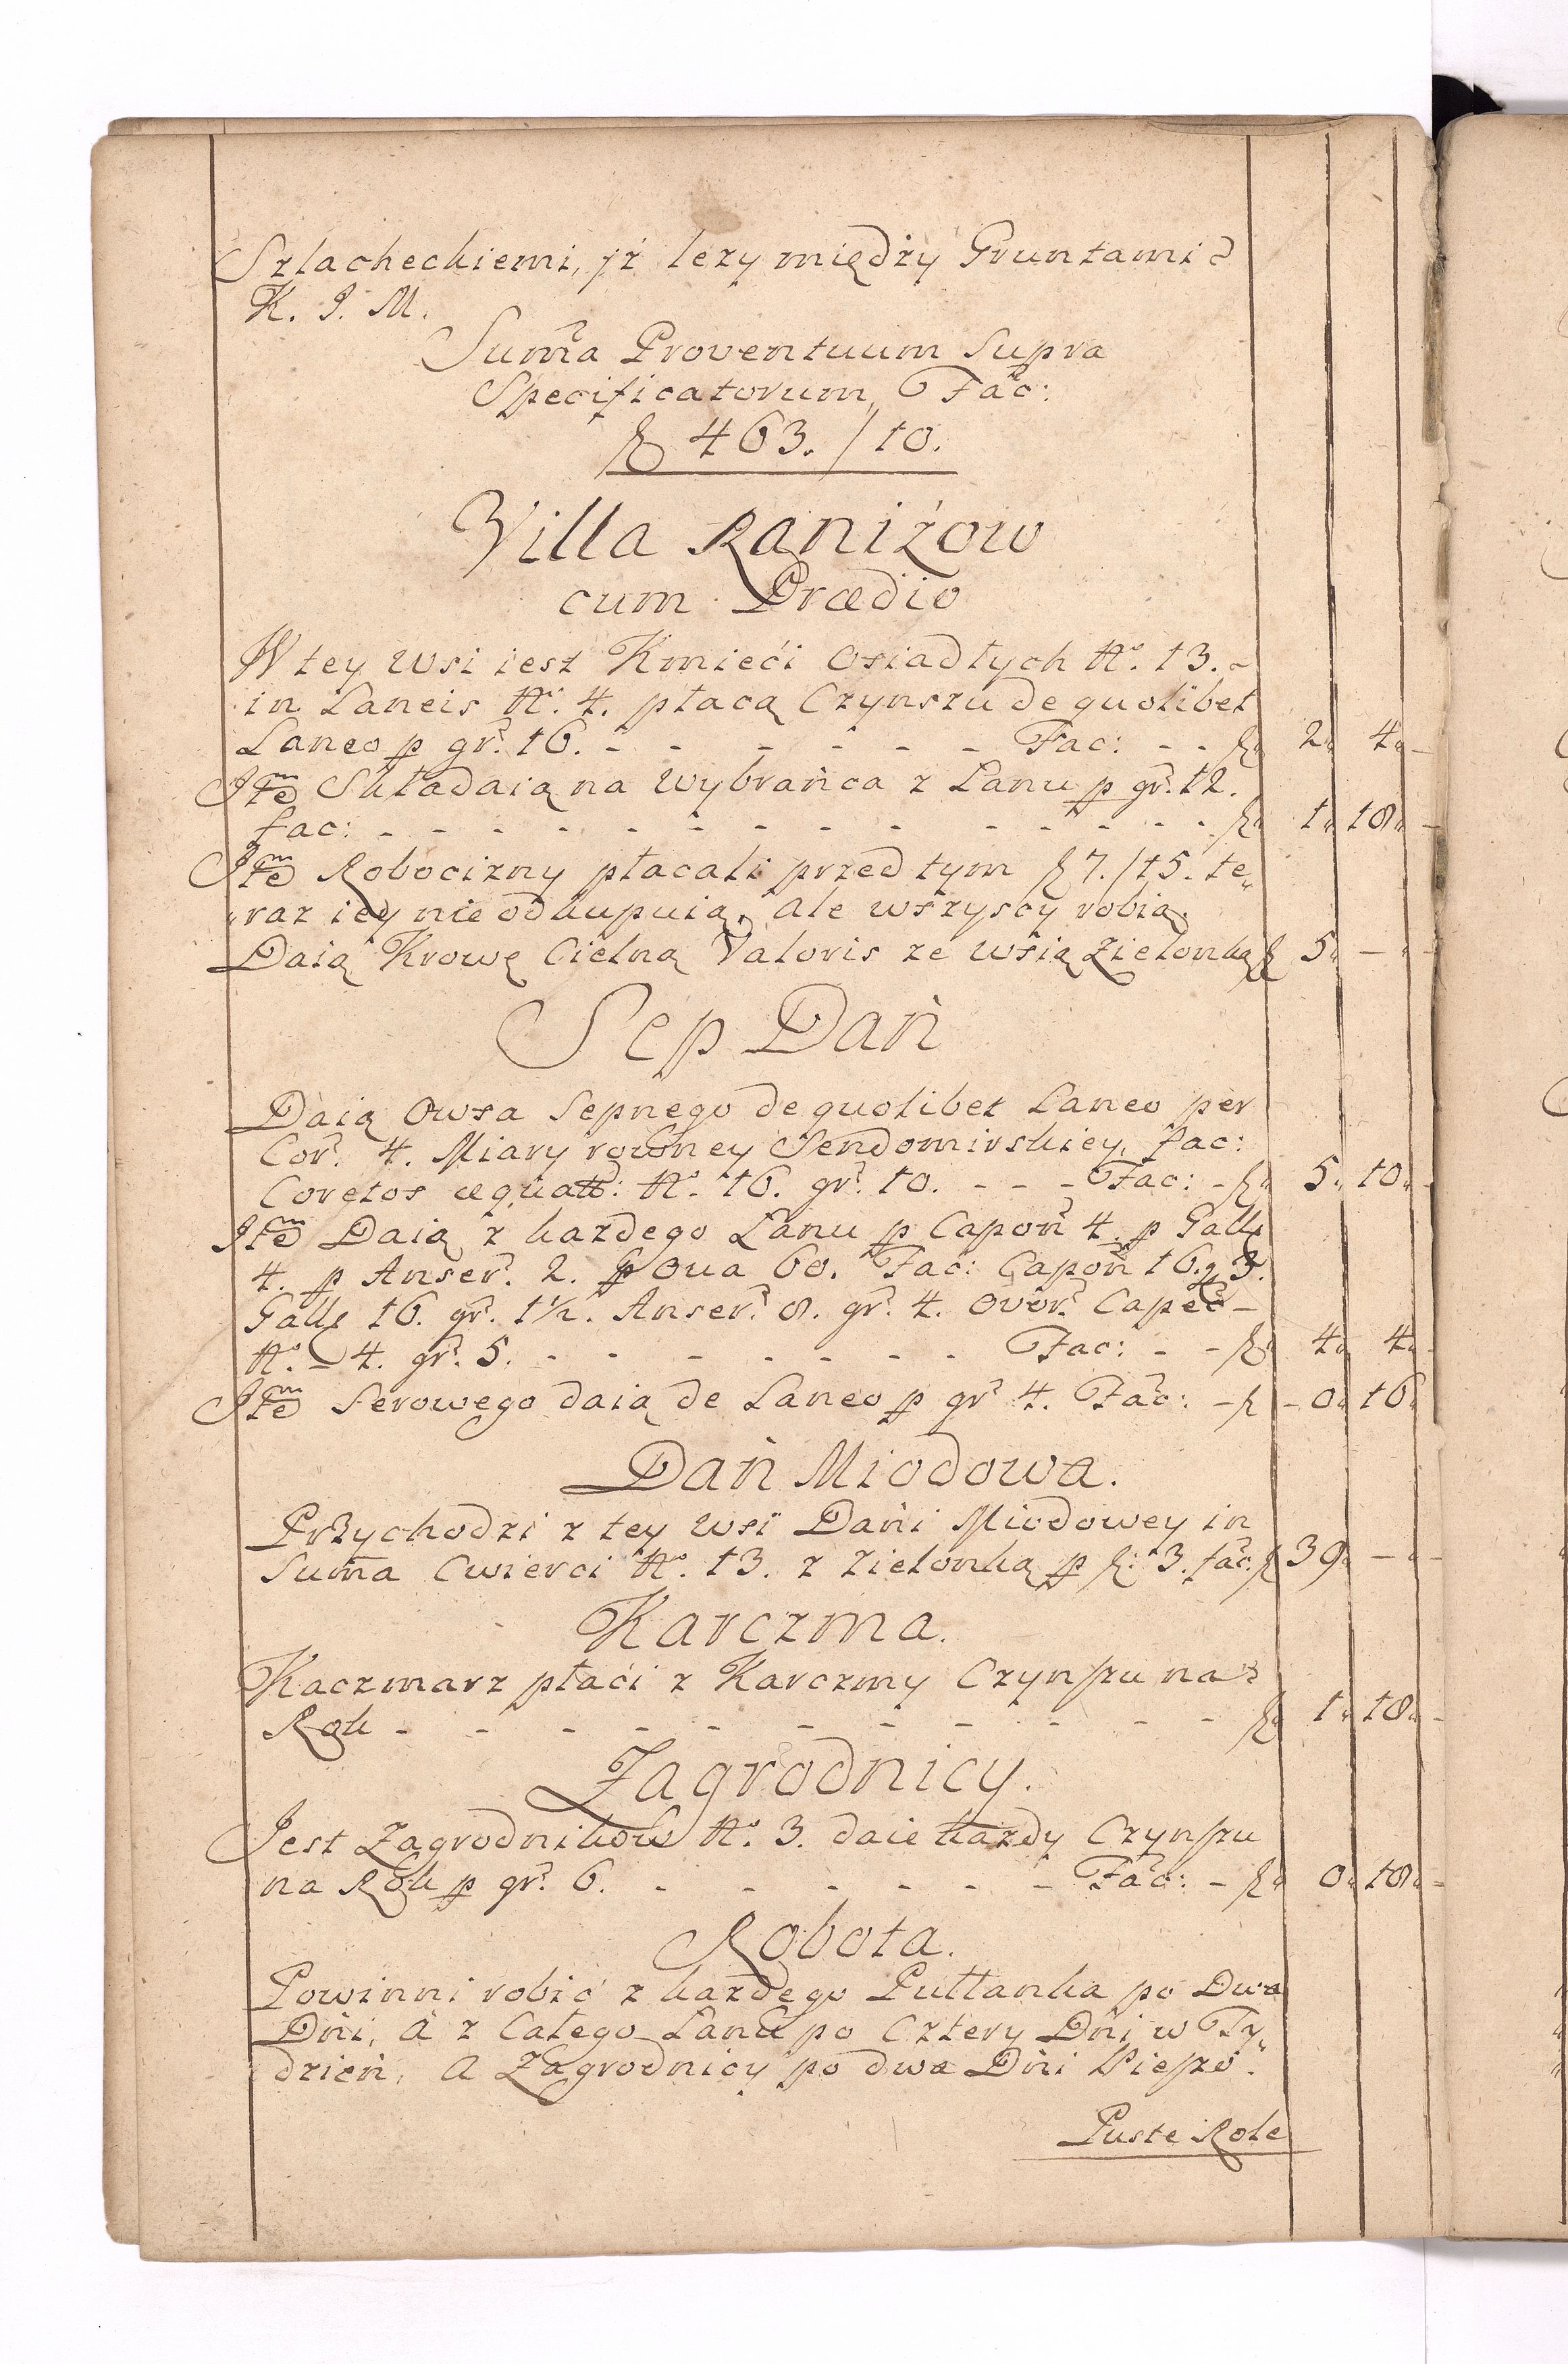 Szlacheckiemi, yż lezy między Gruntami
K. J. M.
Sum̃a Proventuum Supra
Specificatorum, Fac:
fl 463. / 10.
Villa Raniżow
cum Prædio
W tey Wsi iest Kmieći Osiadłych No. 13.
in Laneis No. 4. płacą Czynszu de quolibet
Laneo p gr. 16. - - - - - - Fac: - - fl 2 4
Itẽ Składaią na Wybrańca z Łanu p gr. 12.
fac: - - - - - - - - - - - - - fl 1 18
Itẽ Robocizny płacali przed tym fl 7. / 15. te„
„raz iey nie odkupuią, ale wszyscy robią.
Daią Krowę Cielną Valoris ze wsią Zielonką fl 5 —
Sep Dań
Daią Owsa Sepnego de quolibet Laneo per
Cor. 4. Miary rowney Sendomirskiey, fac:
Coretos æquatt: No. 16. gr. 10. - - - Fac: - fl 5 10
Itẽ Daią z każdego Łanu p Capon 4. p Gall
4. p Anser. 2. p Oua 60. Fac: Capon 16. g 3.
Gall 16. gr. 1½. Anser. 8. gr. 4. Ovor. Capec -
No. - 4. gr. 5. - - - - - - - Fac: - - fl 4 4
Itẽ Serowego daią de Laneo p gr 4. Fac: - fl - 0 16
Dań Miodowa.
Przychodzi z tey wsi Dańi Miodowey in
Sum̃a Cwierci No. 13. z Zielonką p fl: 3. fac. fl 39 —
Karczma.
Kaczmarz płaći z Karczmy Czynszu na
Rok - - - - - - - - - - - fl 1 18
Zagrodnicy.
Jest Zagrodnikow No. 3. daie każdy Czynszu
na Rok p gr. 6. - - - - - - - Fac: - fl 0 18
Robota.
Powinni robić z każdego Pułłanka po Dwa
Dńi, a z Całego Łanu po Cztery Dńi w Ty„
dzień, a Zagrodnicy po dwa Dńi Pieszo.
Puste Role